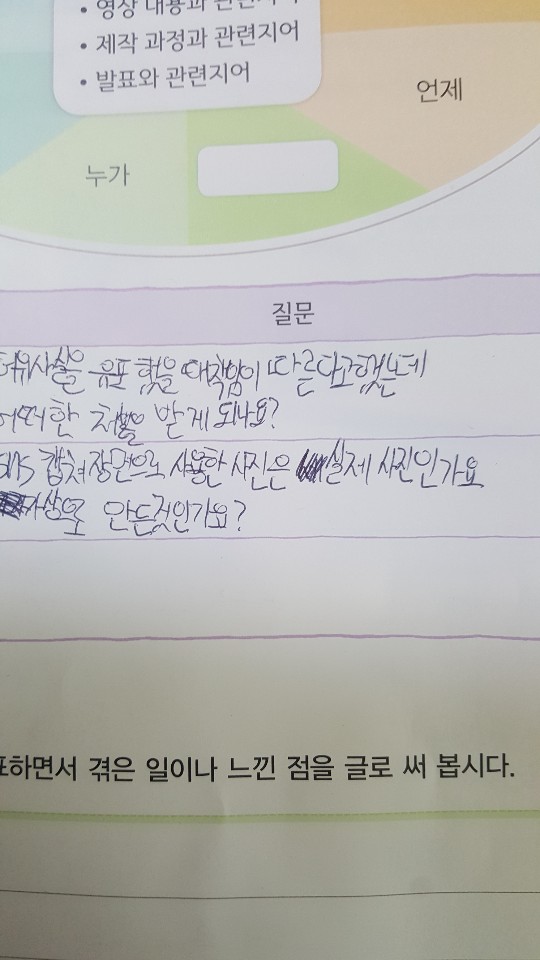 • 영상 내용과 관련지어
• 제작 과정과 관련지어
• 발표와 관련지어
언제
누가
질문
허위사실을 유포 했을 때 책임이 따른다고했는데
어떠한 처벌을 받게 되나요?
SNS 캡쳐장면으로 사용한 사진은 실제 사진인가요
가상으로 만든것인가요?
표하면서 겪은 일이나 느낀 점을 글로 써 봅시다.